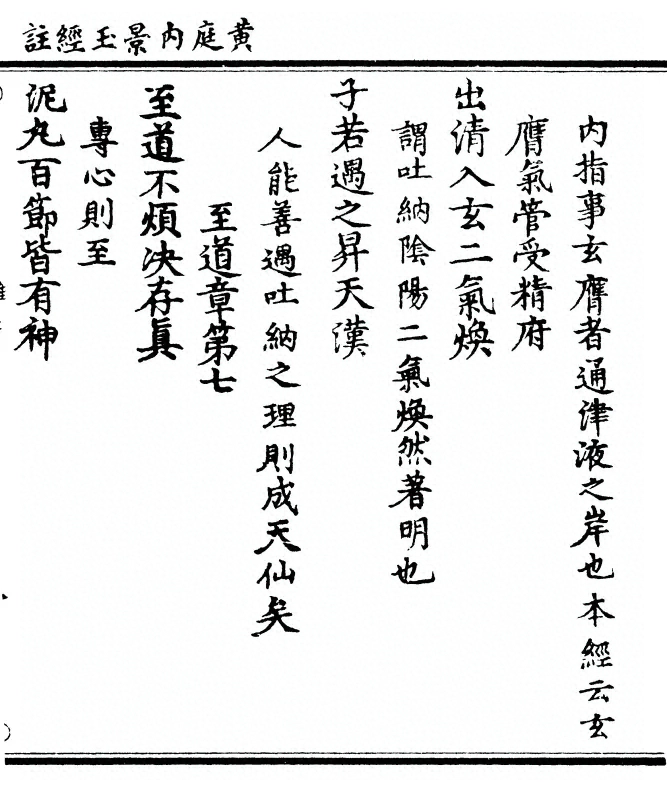 黃庭內景玉經註
內指事玄膺者通津液之岸也本經云玄
膺氣管受精府
出清入玄二氣煥
謂吐納陰陽二氣煥然著明也
子若遇之昇天漢
人能善遇吐納之理則成天仙矣
至道章第七
至道不煩決存眞
專心則至
泥丸百節皆有神